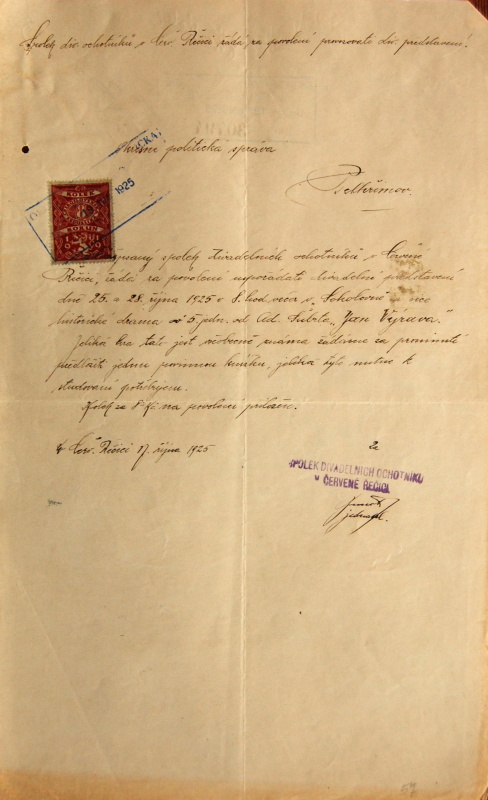 Spolek div. ochotníků v Červ. Řečici žádá za povolení provozovati div. představení.
politická správa
Pelhřimov.
1925
KOLEK
8
KORUN
spolek divadelních ochotníků v Červené
Řečici, žádá za povolení uspořádati divadelní představení
dne 25. a 28. října 1925 v 8. hod. več. v "Sokolovně"
historické drama v 5 jedn. od Ad. Šuberta "Jan Výrava".
Jelikož hra tato jest všobecně známa žádáme za prominutí
předložiti jednu povinnou knížku, jelikož
studování potřebujem.
Kolek za 8 Kč na povolení přiložen.
V Červ. Řečici 17. října 1925
Za
SPOLEK DIVADELNÍCH OCHOTNÍKŮ
v ČERVENÉ ŘEČICI
jednatel.
57